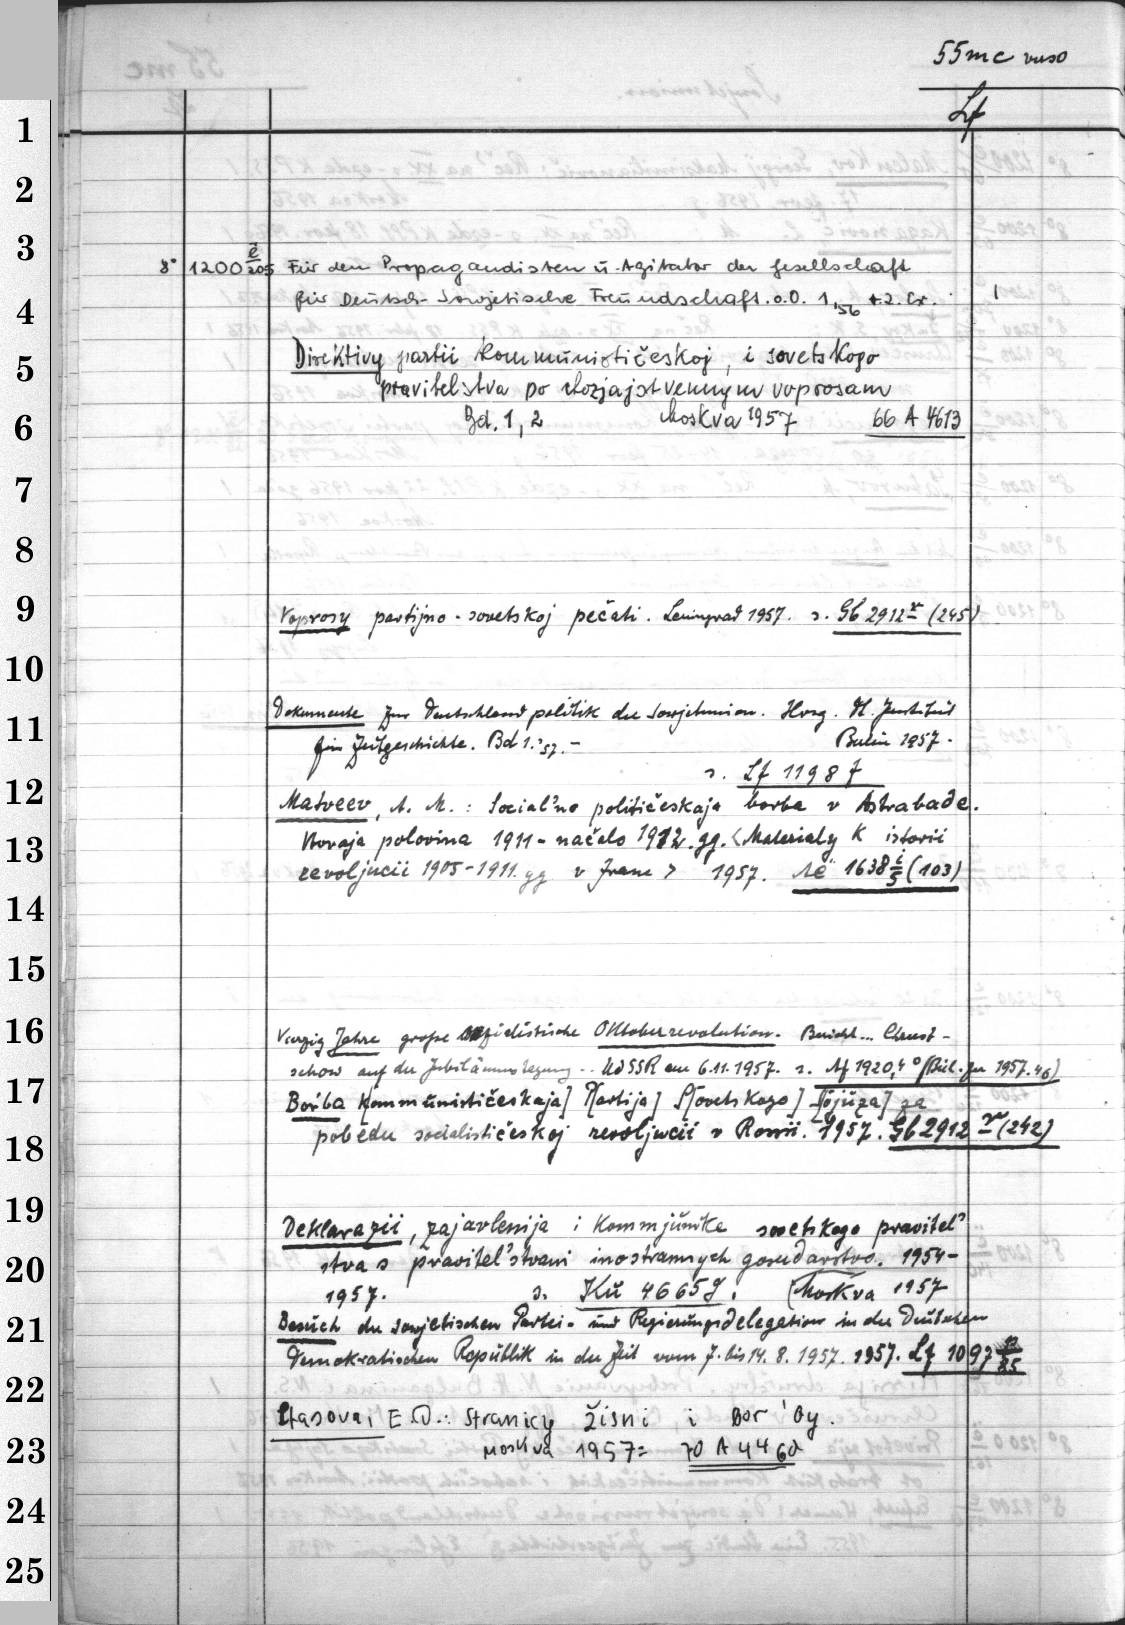 55mc verso
Lf
1
2
3
8° 1200 ě/205 Für den Propagandisten u. Agitator der Gesellschaft
4
für Deutsch-Sowjetische Freundschaft. o.O. 1,56 + 2. Ex. 1
5
Direktivy partii kommunističeskoj, i sovetskogo
pravitel'stva po chozjajstvennym voprosam
6
Bd. 1, 2 Moskva 1957 66 A 4613
7
8
9
Voprosy partijno-sovetskoj pečati. Leningrad 1957. s. Gb 2912 (245)
10
Dokumente zur Deutschlandpolitik der Sowjetunion. Hrsg. Dt. Institut
11
für Zeitgeschichte. Bd 1. '57. - Berlin 1957.
s. Lf 1198 f
12
Matveev, A. M.: Social'no političeskaja borba v Astrabade.
13
polovina 1911 - načalo 1912. gg. <Materialy k istorii
revoljucii 1905-1911. gg v Irane> 1957. 1638 (103)
14
15
16
Vierzig Jahre große sozialistische Oktoberrevolution. Bericht... Chrust-
schow auf der Jubiläumstagung .. UdSSR am 6.11.1957. s. Af 1920, 4° (Beil. zu 1957.46)
17
Bor'ba K[ommunističeskaja] P[artija] S[ovetskogo] S[ojuza] za
18
pobedu socialističeskoj revoljucii v Rossii. 1957. Gb 2912 (242)
19
Deklarazii, zajavlenija i kommjunike sovetskogo pravitel'
20
stva s pravitel'stvami inostrannych gosudarstvo. 1954-
1957. s. Kü 4665 . Moskva 1957
21
Besuch der sowjetischen Partei- und Regierungsdelegation in der Deutschen
Demokratischen Republik in der Zeit vom 7. bis 14. 8. 1957. 1957. Lf 1097
22
Stasova, E.D.: Stranicy žisni i bor'by.
23
Moskva 1957= 70 A 4460
24
25